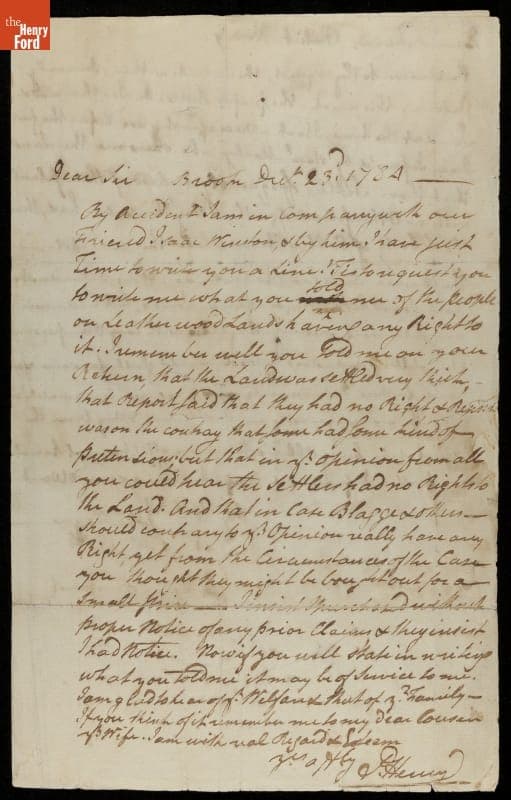 the
Henry
Ford
Dear Sir Decr. 23d. 1784
By Accident I am in company with our
Friend Isaac Winston, & by him I have just
Time to write you a Line. 'Tis to request you
to write me what you told me of the people
on Leatherwood Lands having any Right to
it. I remember well you told me on your
Return, that the Land was settled very thick,
that Report said that they had no Right &
was on the contrary that some had some kind of
pretensions; but that in yr. Opinion from all
you could hear the Settlers had no Right to
the Land. And that in Case Blagge & others
should contrary to yr. Opinion really have any
Right, yet from the Circumstances of the Case
you thought they might be bought out for a
small price without
proper Notice of any prior Claims & they insist
I had Notice. Now if you will state in writing
what you told me it may be of Service to me.
I am glad to hear of yr. Welfare & that of yr. Family
If you think of it remember me to my dear Cousin
yr. Wife. I am with real Regard & Esteem
P. Henry